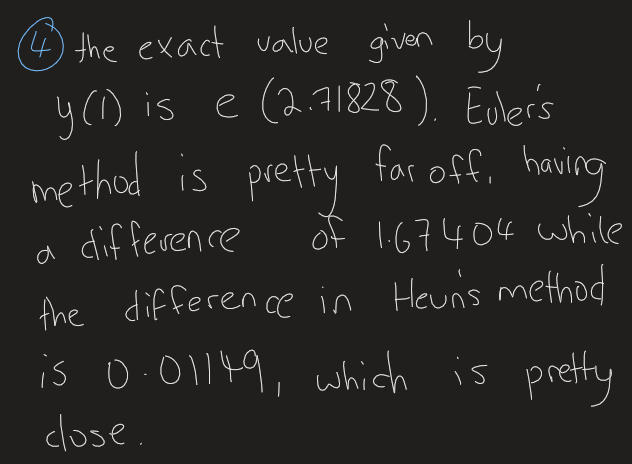 ④ the exact value given by
y(1) is e (2.71828). Euler's
method is pretty far off, having
a difference of 1.67404 while
the difference in Heun's method
is 0.01149, which is pretty
close.